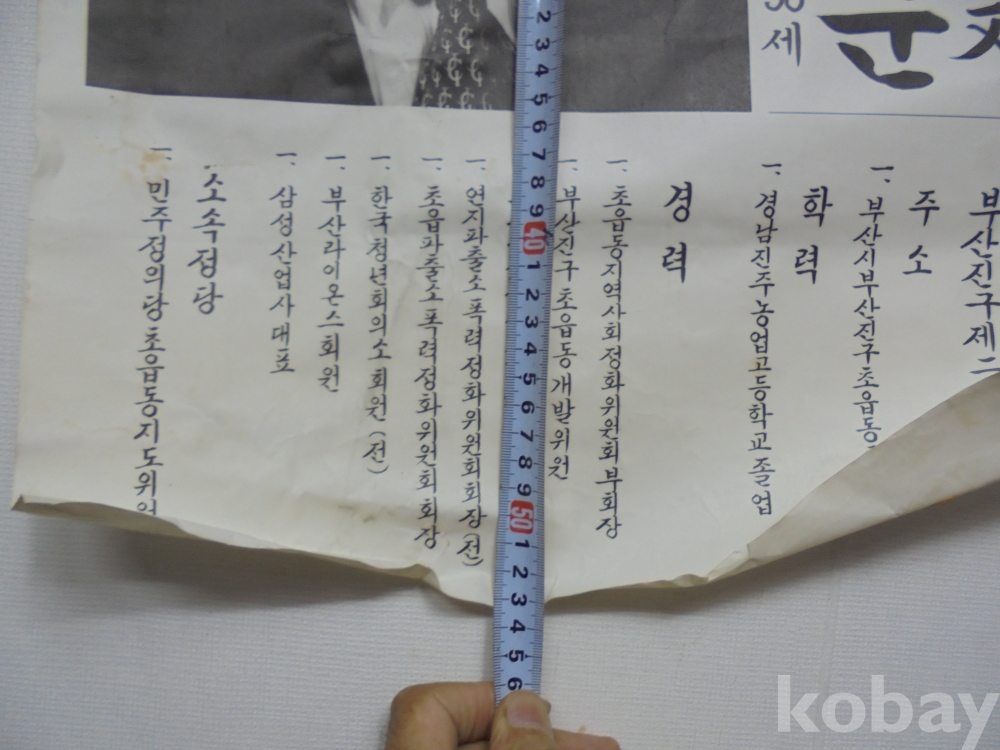 세
군
부산진구제
주소
一. 부산시부산진구초읍동
학력
一. 경남진주농업고등학교졸업
경력
一. 초읍동지역사회정화위원회부회장
一. 부산진구초읍동개발위원
一. 연지파출소폭력정화위원회회장(전)
一. 초읍파출소폭력정화위원회회장
一. 한국청년회의소회원(전)
一. 부산라이온스회원
一. 삼성산업사대표
소속정당
一. 민주정의당초읍동지도위원
2 3 4 5 6 7 8 9 40 1 2 3 4 5 6 7 8 9 50 1 2 3 4 5 6
kobay